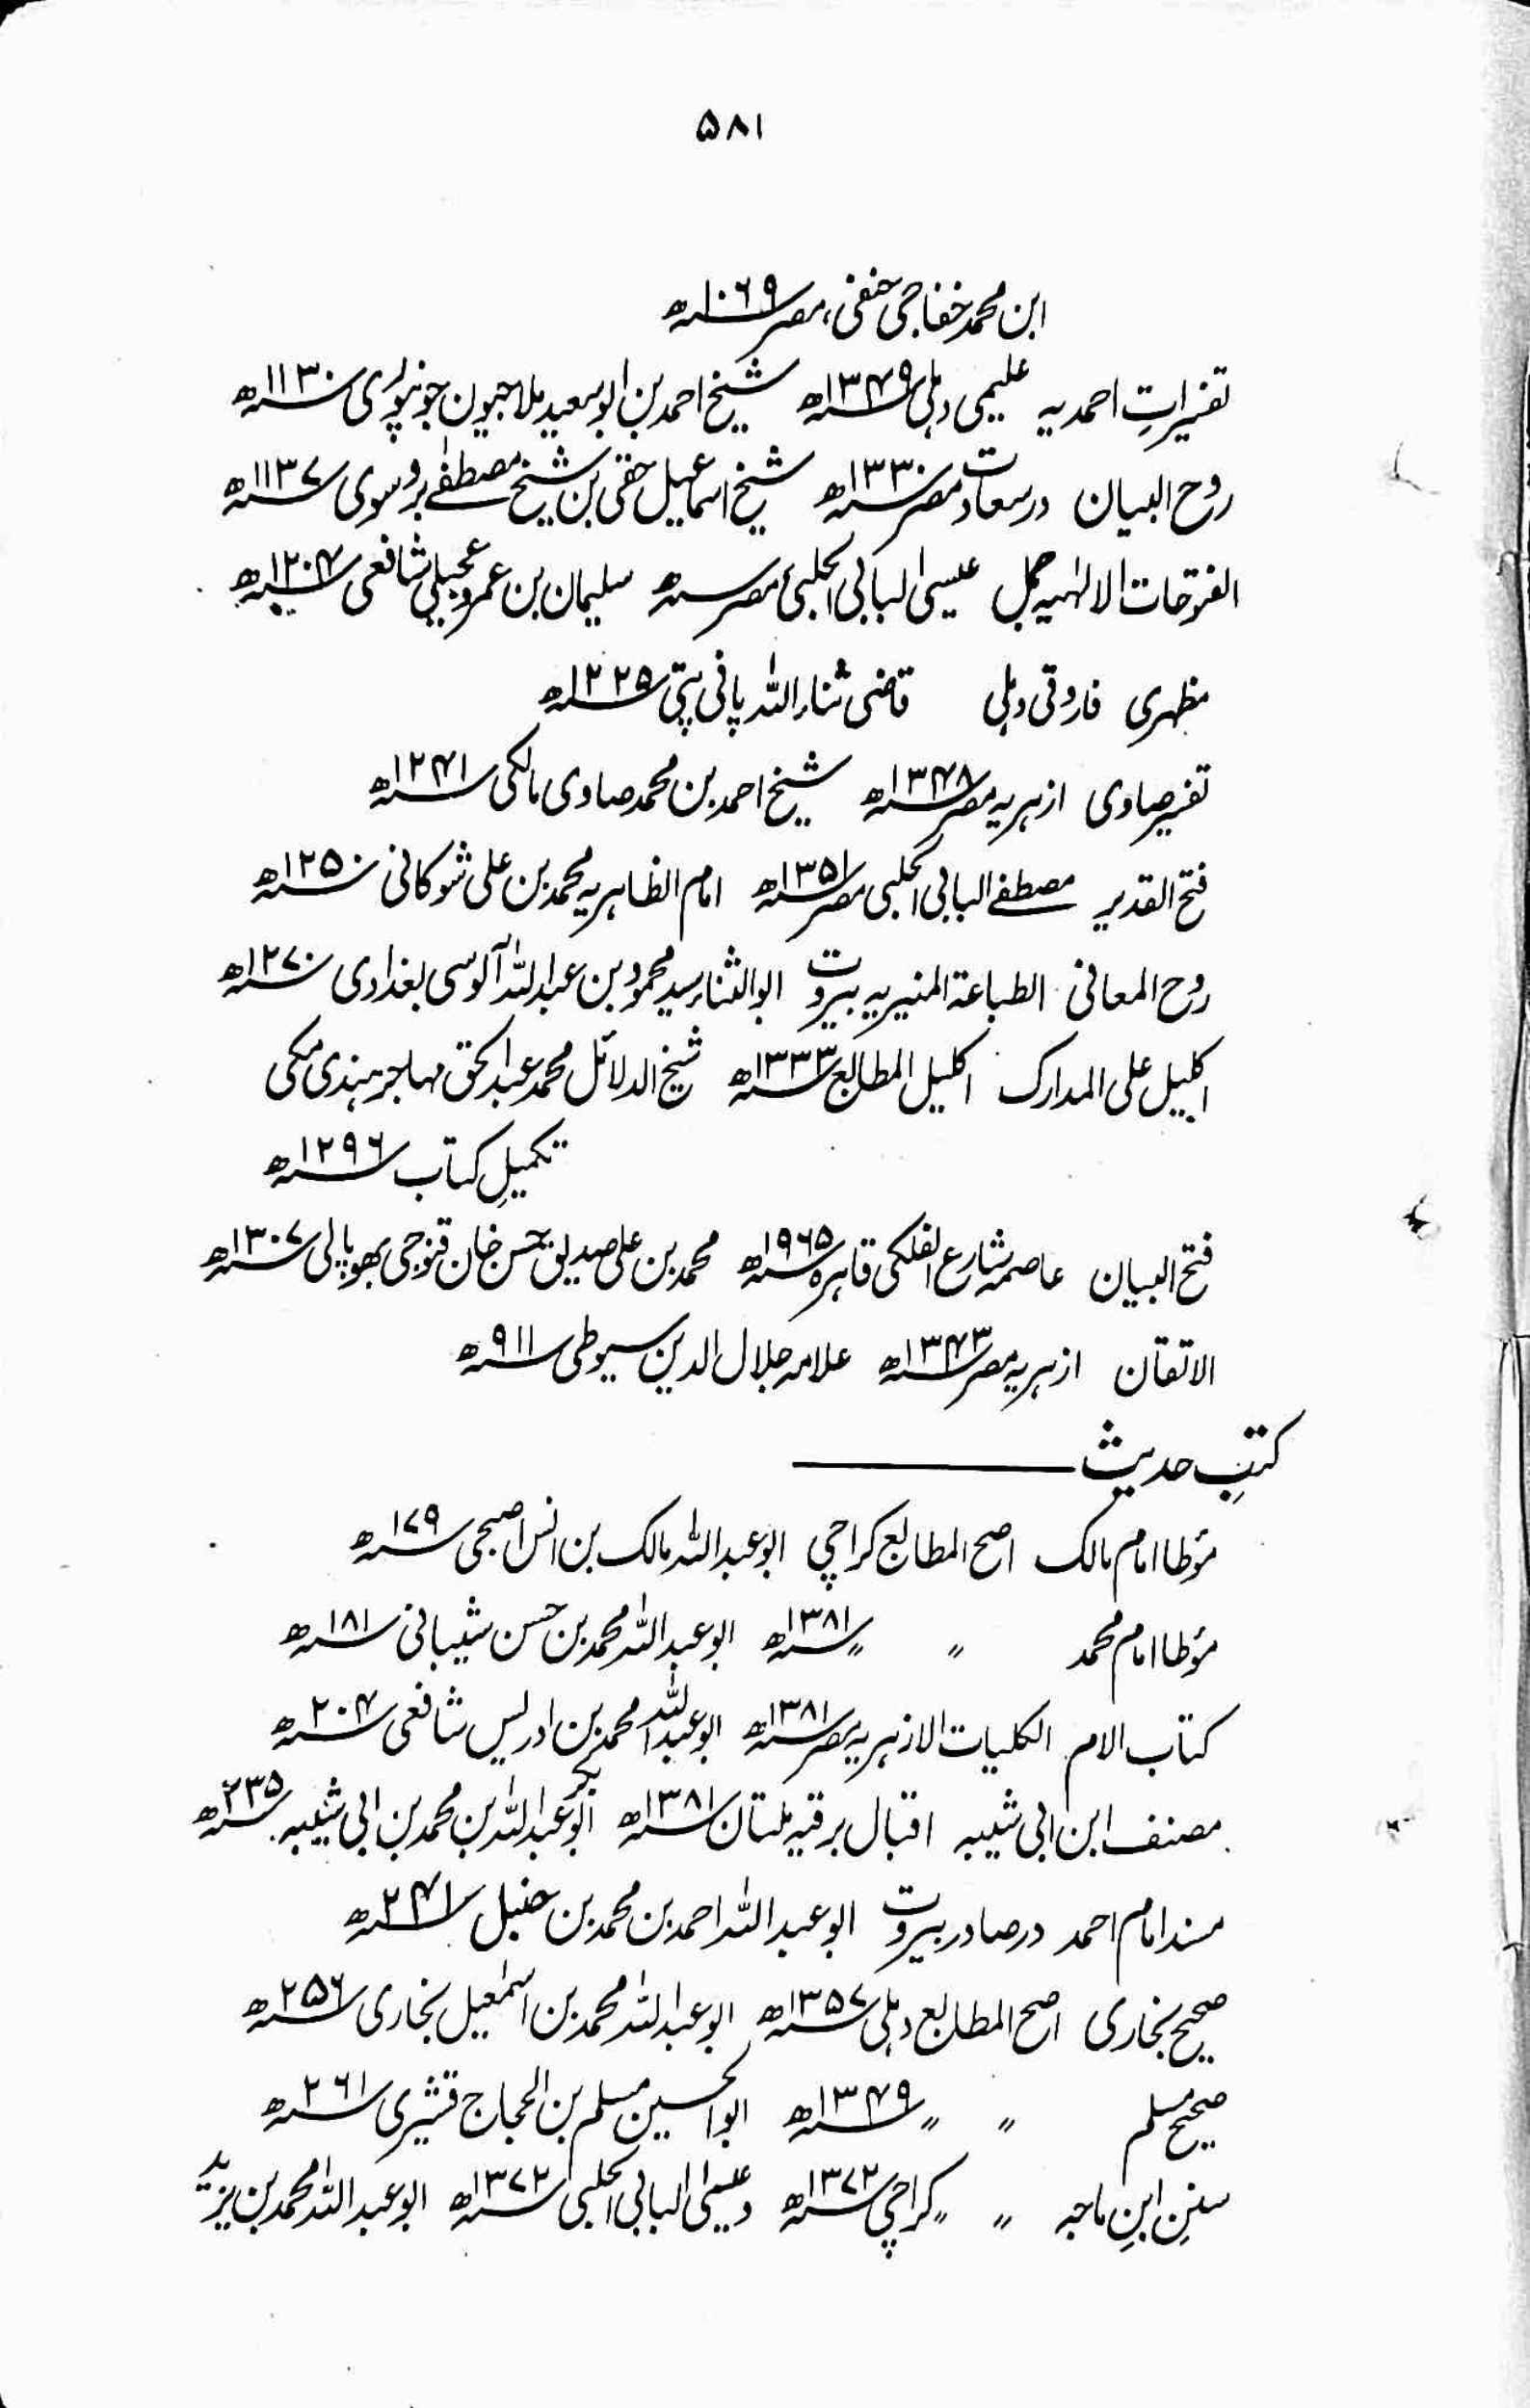 ۵۸۱
ابن محمد خفاجی حنفی، مصر ۱۰۶۹ھ
تفسیراتِ احمدیہ علیمی دہلی ۱۳۴۹ھ شیخ احمد بن ابو سعید ملا جیون جونپوری ۱۱۳۰ھ
روح البیان درسعادت مصر ۱۳۳۰ھ شیخ اسماعیل حقی بن شیخ مصطفٰے بروسوی ۱۱۳۷ھ
الفتوحات الالٰہیہ جمل عیسی البابی الحلبی مصر سنہ ھ سلیمان بن عمر عجیلی شافعی ۱۲۰۴ھ
مظہری فاروقی دہلی قاضی ثناء اللہ پانی پتی ۱۲۲۵ھ
تفسیر صاوی ازہریہ مصر ۱۳۴۸ھ شیخ احمد بن محمد صاوی مالکی ۱۲۴۱ھ
فتح القدیر مصطفے البابی الحلبی مصر ۱۳۵۱ھ امام الظاہریہ محمد بن علی شوکانی ۱۲۵۰ھ
روح المعانی الطباعۃ المنیریہ بیروت ابوالثناء سید محمود بن عبداللہ آلوسی بغدادی ۱۲۷۰ھ
اکلیل علی المدارک اکلیل المطابع ۱۳۳۳ھ شیخ الدلائل محمد عبدالحق مہاجر ہندی مکی
تکمیلِ کتاب ۱۲۹۶ھ
فتح البیان عاصمہ شارع الفلکی قاہرہ ۱۹۶۵ھ محمد بن علی صدیق حسن خان قنوجی بھوپالی ۱۳۰۷ھ
الاتقان ازہریہ مصر ۱۳۴۳ھ علامہ جلال الدین سیوطی ۹۱۱ھ
کتبِ حدیث
مؤطا امام مالک اصح المطابع کراچی ابو عبداللہ مالک بن انس اصبحی ۱۷۹ھ
مؤطا امام محمد 〃 〃 ۱۳۸۱ھ ابو عبداللہ محمد بن حسن شیبانی ۱۸۱ھ
کتاب الام الکلیات الازہریہ مصر ۱۳۸۱ھ ابو عبداللہ محمد بن ادریس شافعی ۲۰۴ھ
مصنف ابن ابی شیبہ اقبال برقیہ ملتان ۱۳۸۱ھ ابوبکر عبداللہ بن محمد بن ابی شیبہ ۲۳۵ھ
مسند امام احمد درصادر بیروت ابو عبداللہ احمد بن محمد بن حنبل ۲۴۱ھ
صحیح بخاری اصح المطابع دہلی ۱۳۵۷ھ ابو عبداللہ محمد بن اسمٰعیل بخاری ۲۵۶ھ
صحیح مسلم 〃 〃 ۱۳۴۹ھ ابوالحسین مسلم بن الحجاج قشیری ۲۶۱ھ
سننِ ابنِ ماجہ 〃 〃 کراچی ۱۳۷۲ھ وعیسی البابی الحلبی ۱۳۷۲ھ ابو عبداللہ محمد بن یزید